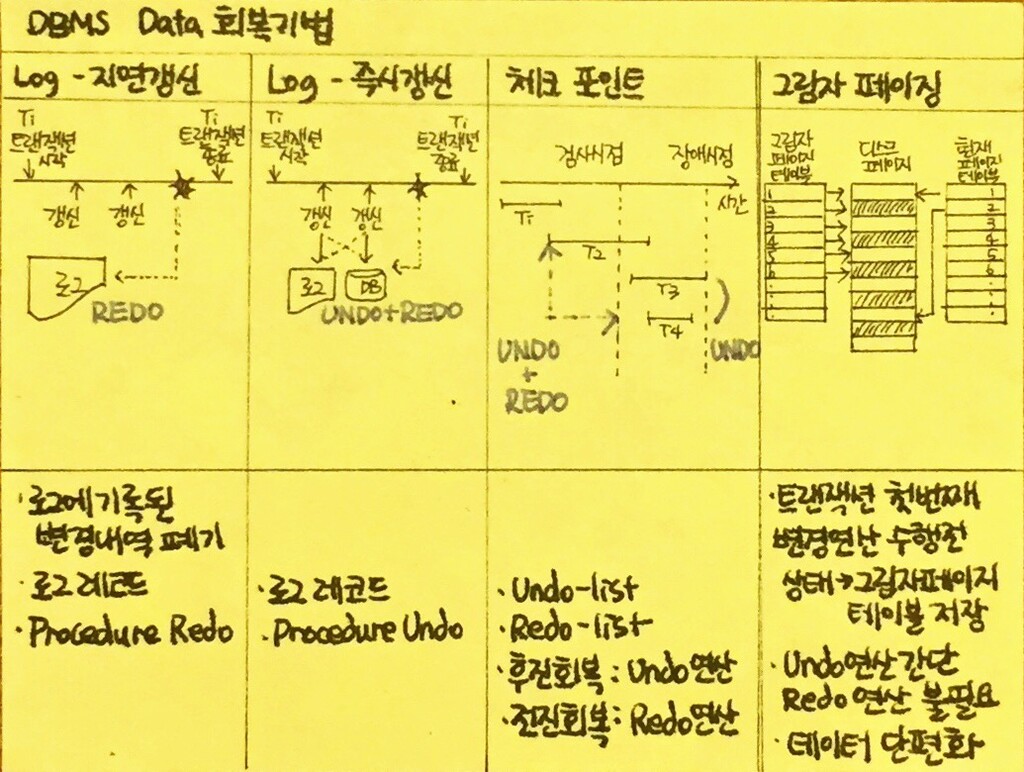 DBMS Data 회복기법
Log - 지연갱신
Ti
트랜잭션
시작
Ti
트랜잭션
종료
갱신
갱신
로그
REDO
·로그에 기록된
변경내역 폐기
·로그 레코드
·Procedure Redo
Log - 즉시갱신
Ti
트랜잭션
시작
Ti
트랜잭션
종료
갱신
갱신
로그
DB
UNDO+REDO
·로그 레코드
·Procedure Undo
체크 포인트
검사시점
장애시점
시간
Ti
T2
T3
T4
UNDO
+
REDO
UNDO
·Undo-list
·Redo-list
·후진회복 : Undo연산
·전진회복 : Redo연산
그림자 페이징
그림자
페이지
테이블
디스크
페이지
현재
페이지
테이블
1
2
3
4
5
6
1
2
3
4
5
6
·트랜잭션 첫번째
변경연산 수행전
상태→그림자페이지
테이블 저장
·Undo연산 간단
Redo연산 불필요
·데이터 단편화